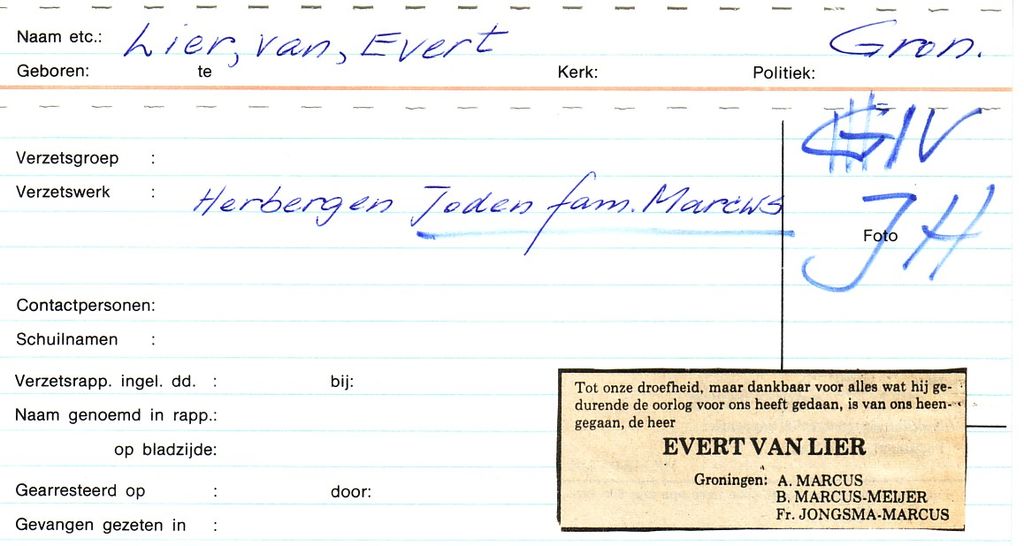 Naam etc.: Lier, van, Evert Gron.
Geboren: te Kerk: Politiek:
Verzetsgroep :
Verzetswerk : Herbergen Joden fam. Marcws
JH
Foto
Contactpersonen:
Schuilnamen :
Verzetsrapp. ingel. dd. : bij:
Naam genoemd in rapp.:
op bladzijde:
Gearresteerd op : door:
Gevangen gezeten in :
Tot onze droefheid, maar dankbaar voor alles wat hij ge-
durende de oorlog voor ons heeft gedaan, is van ons heen-
gegaan, de heer
EVERT VAN LIER
Groningen: A. MARCUS
B. MARCUS-MEIJER
Fr. JONGSMA-MARCUS